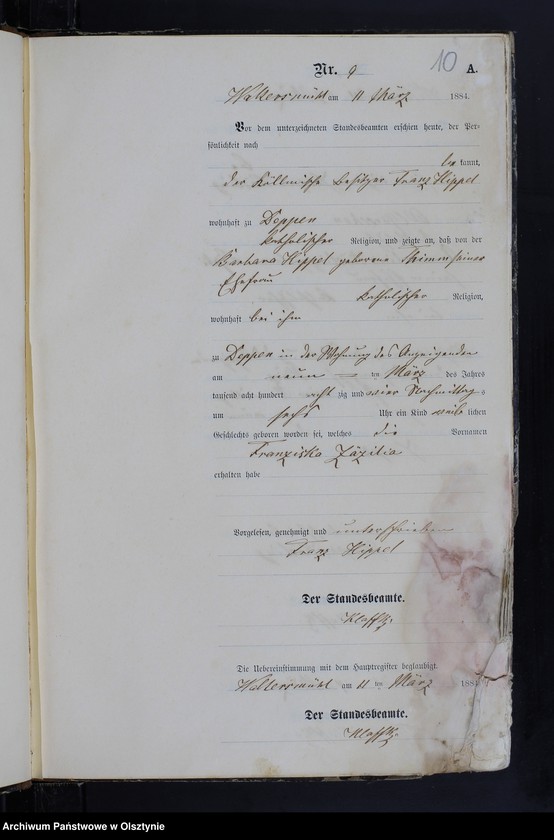 10
Nr. 9 A.
Woltersmühl am 11 März 1884.
Vor dem unterzeichneten Standesbeamten erschien heute, der Per-
sönlichkeit nach
be kannt,
der Köllmische Besitzer Franz Hippel
wohnhaft zu Deppen
katholischer Religion, und zeigte an, daß von der
Barbara Hippel geborene
Ehefrau
katholischer Religion,
wohnhaft bei ihm
zu Deppen in der Wohnung des Anzeigenden
am neun ten März des Jahres
tausend acht hundert acht zig und vier Nachmittag s
um sechs Uhr ein Kind weib lichen
Geschlechts geboren worden sei, welches die Vornamen
Franziska Zäzilia
erhalten habe
Vorgelesen, genehmigt und unterschrieben
Franz Hippel
Der Standesbeamte.
Klafki
Die Uebereinstimmung mit dem Hauptregister beglaubigt.
Woltersmühl am 11 ten März 188
Der Standesbeamte.
Klafki
Archiwum Państwowe w Olsztynie